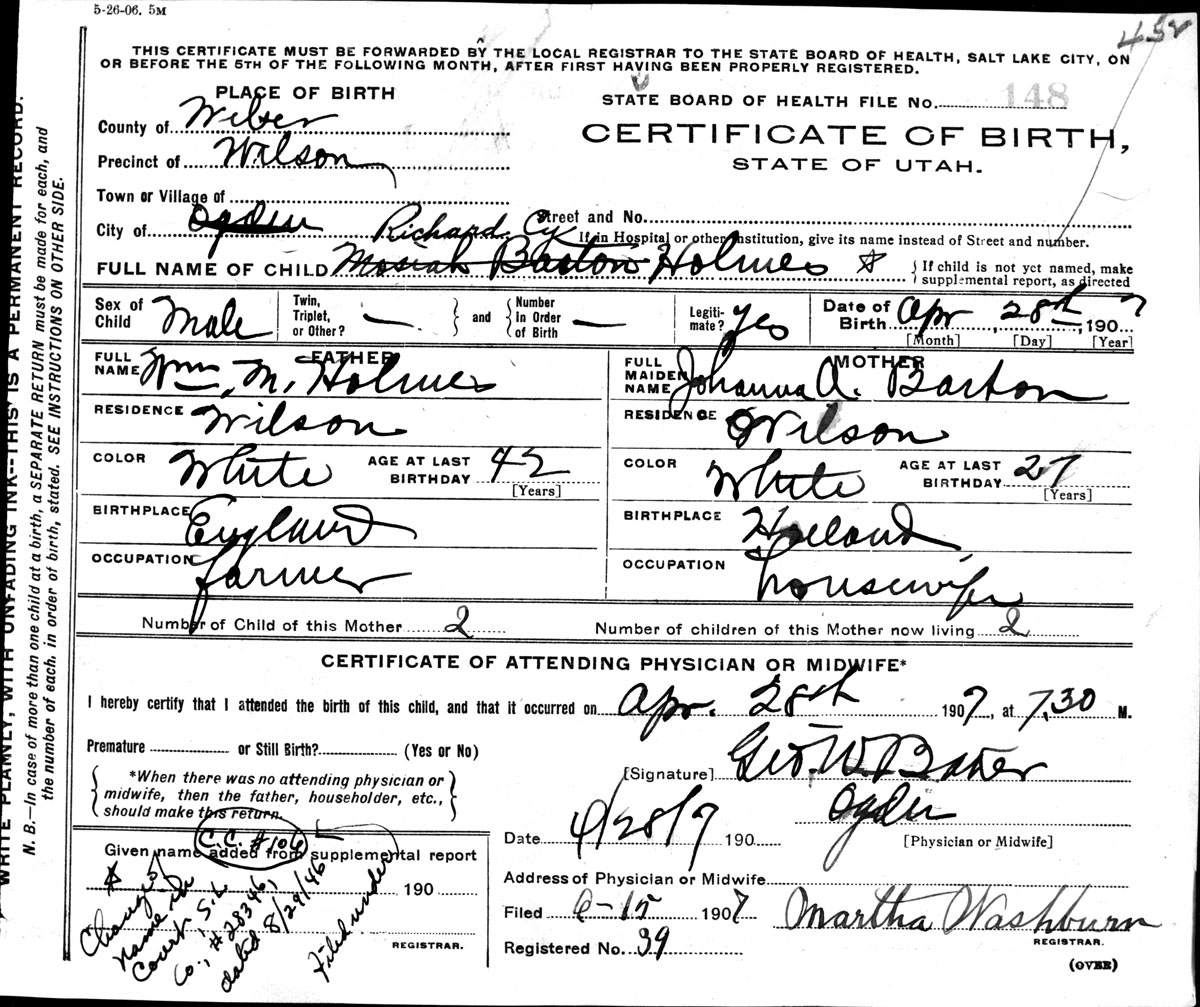 5-26-06. 5M
452
THIS CERTIFICATE MUST BE FORWARDED BY THE LOCAL REGISTRAR TO THE STATE BOARD OF HEALTH, SALT LAKE CITY, ON
OR BEFORE THE 5TH OF THE FOLLOWING MONTH, AFTER FIRST HAVING BEEN PROPERLY REGISTERED.
PLACE OF BIRTH
STATE BOARD OF HEALTH FILE No. 148
County of Weber
CERTIFICATE OF BIRTH,
Precinct of Wilson
STATE OF UTAH.
Town or Village of
Street and No.
City of Ogden
If in Hospital or other Institution, give its name instead of Street and number.
Richard Cy
FULL NAME OF CHILD Mosiah Barton Holmes ☆ { If child is not yet named, make
supplemental report, as directed
Sex of Child Male
Twin, Triplet, or Other? — } and { Number In Order of Birth —
Legitimate? Yes
Date of Birth Apr, 28th, 1907
[Month] [Day] [Year]
FATHER
FULL NAME Wm. M. Holmes
RESIDENCE Wilson
COLOR White AGE AT LAST BIRTHDAY 42
[Years]
BIRTHPLACE England
OCCUPATION farmer
MOTHER
FULL MAIDEN NAME Johanna A. Barton
RESIDENCE Wilson
COLOR White AGE AT LAST BIRTHDAY 27
[Years]
BIRTHPLACE Holland
OCCUPATION housewife
Number of Child of this Mother 2 Number of children of this Mother now living 2
CERTIFICATE OF ATTENDING PHYSICIAN OR MIDWIFE*
I hereby certify that I attended the birth of this child, and that it occurred on Apr. 28th 1907, at 7,30 M.
Premature or Still Birth? (Yes or No)
*When there was no attending physician or
midwife, then the father, householder, etc.,
should make this return.
[Signature] Geo. W. Baker
Ogden
[Physician or Midwife]
Date 4/28/7 190
C.C. #106
Given name added from supplemental report
190
REGISTRAR.
☆ Changed
name in
Court, S.L.
Co., # 28346,
dated 8/29/46
Filed under
Address of Physician or Midwife
Filed 6-15 1907 Martha Washburn
REGISTRAR.
Registered No. 39
(OVER)
WRITE PLAINLY, WITH UNFADING INK--THIS IS A PERMANENT RECORD.
N. B.—In case of more than one child at a birth, a SEPARATE RETURN must be made for each, and
the number of each, in order of birth, stated. SEE INSTRUCTIONS ON OTHER SIDE.